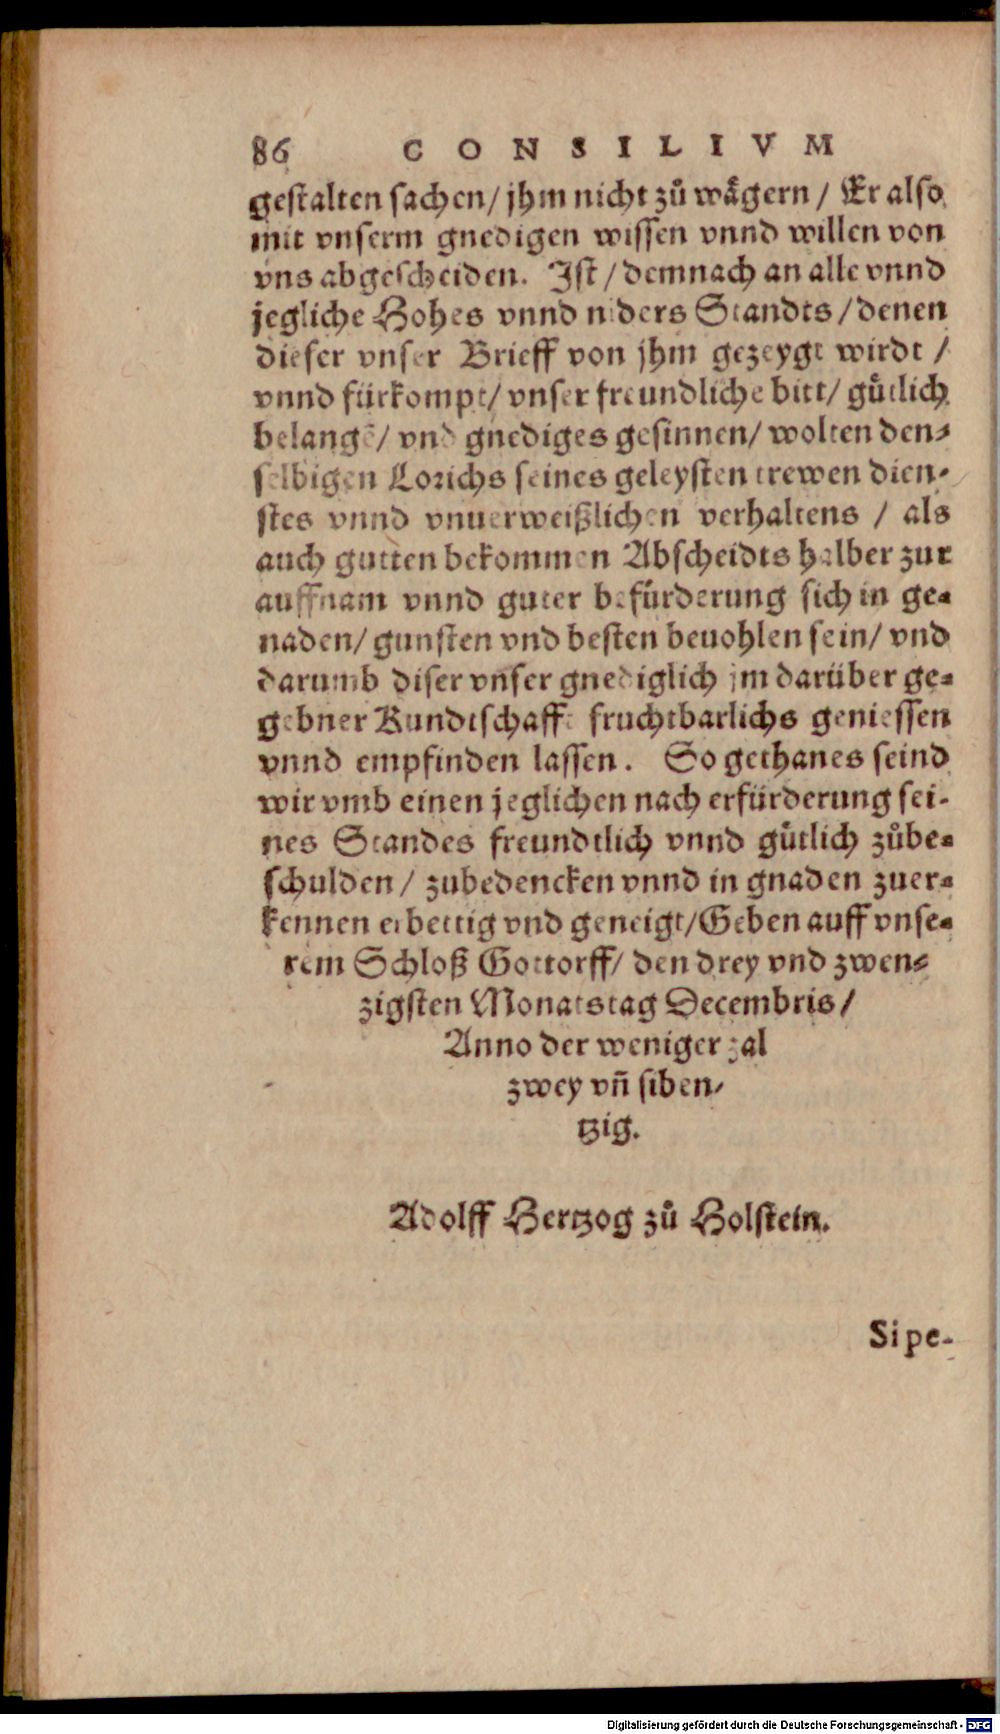 86 CONSILIVM
gestalten sachen/ jhm nicht zů wågern / Er also
mit vnserm gnedigen wissen vnnd willen von
vns abgescheiden. Ist / demnach an alle vnnd
jegliche Hohes vnnd niders Standts / denen
dieser vnser Brieff von jhm gezeygt wirdt /
vnnd fürkompt/ vnser freundliche bitt/ gůtlich
belangē/ vnd gnediges gesinnen/ wolten den-
selbigen Lorichs seines geleysten trewen dien-
stes vnnd vnuerweißlichen verhaltens / als
auch gutten bekommen Abscheidts halber zur
auffnam vnnd guter befürderung sich in ge-
naden/ gunsten vnd besten beuohlen sein/ vnd
darumb diser vnser gnediglich jm darüber ge-
gebner Kundtschafft fruchtbarlichs geniessen
vnnd empfinden lassen. So gethanes seind
wir vmb einen jeglichen nach erfürderung sei-
nes Standes freundtlich vnnd gůtlich zůbe-
schulden / zubedencken vnnd in gnaden zuer-
kennen erbettig vnd geneigt/Geben auff vnse-
rem Schloß Gottorff/ den drey vnd zwen-
zigsten Monatstag Decembris /
Anno der weniger zal
zwey vñ siben-
tzig.
Adolff Hertzog zů Holstein.
Sipe-
Digitalisierung gefördert durch die Deutsche Forschungsgemeinschaft - DFG